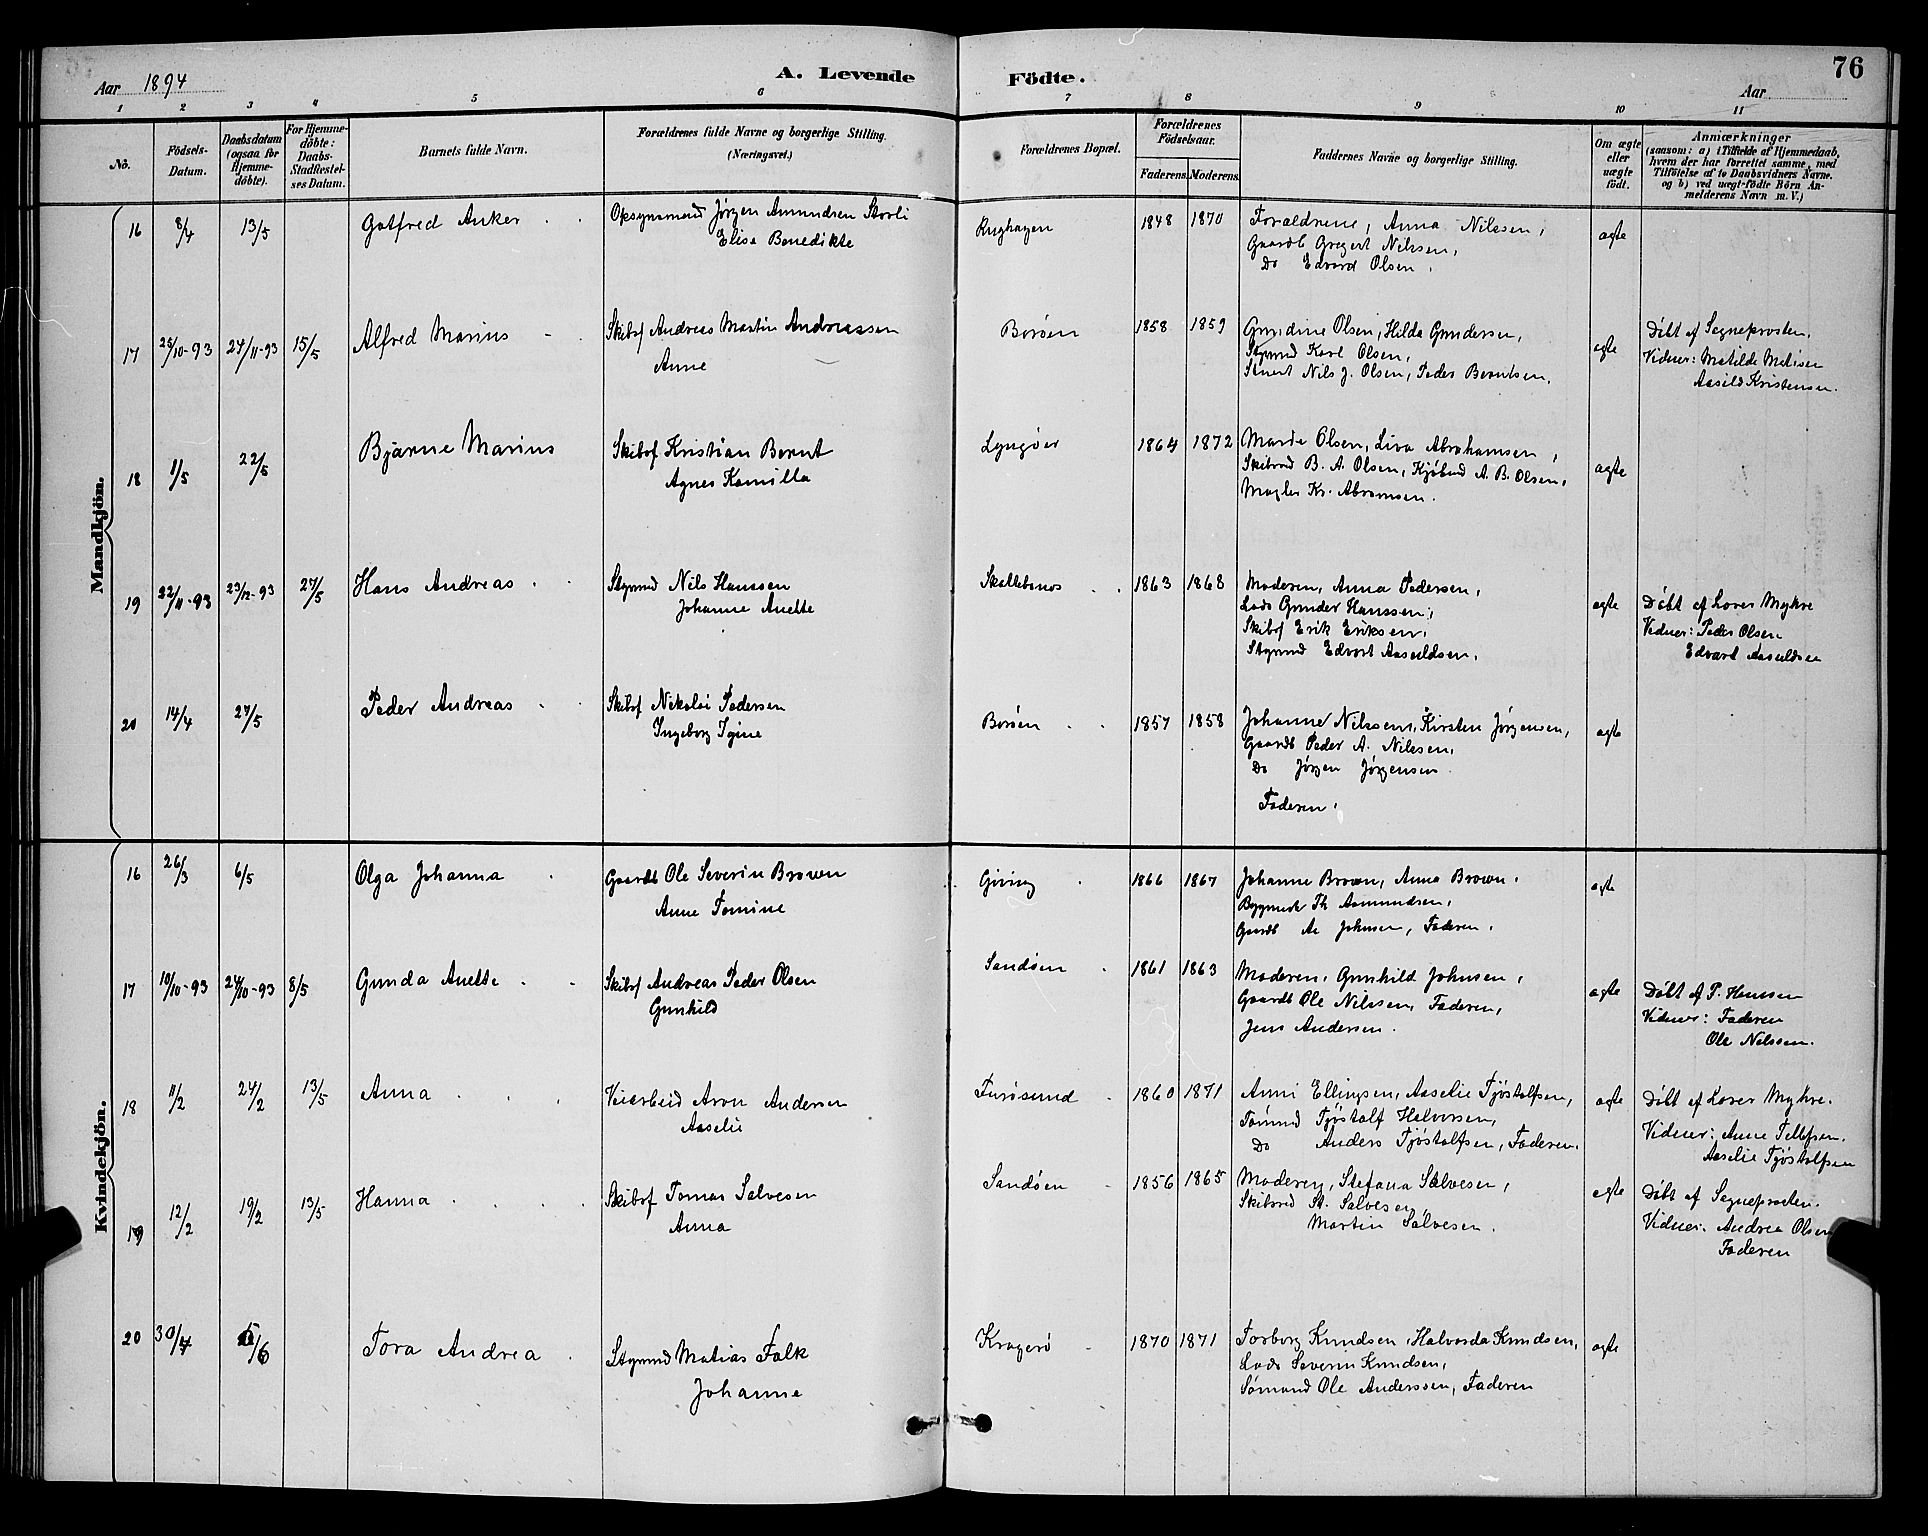 76
Aar 1894
A. Levende
Födte.
Aar
1 2 3 4 5 6 7 8 9 10 11
No.
Födsels-
Datum.
Daabsdatum
(ogsaa for
Hjemme-
döbte).
For Hjemme-
döbte:
Daabs-
Stadfæstel-
ses Datum.
Barnets fulde Navn.
Forældrenes fulde Navne og borgerlige Stilling.
(Næringsvei.)
Forældrenes Bopæl.
Forældrenes
Födselsaar.
Faderens. Moderens.
Faddernes Navne og borgerlige Stilling.
Om ægte
eller
uægte
født.
Anmærkninger
(saasom: a) i Tilfælde af Hjemmedaab,
hvem der har forrettet samme, med
Tilföielse af to Daabsvidners Navne.
og b) ved uægt-födte Börn An-
melderens Navn m. V.)
Mandkjön.
16 8/4 13/5 Gotfred Anker Opsynsmand Jørgen Amundsen Stovli
Elise Benedikte
1848 1870 Forældrene, Anna Nilssen,
Gaardb Gregert Nilssen,
Do Edvard Olsen.
ægte
17 25/10-93 24/11-93 15/5 Alfred Marius Skibsf Andreas Martin Andreassen
Anne
Borøen 1858 1859 Gundine Olsen, Hilda Gundersen,
Stynnd Karl Olsen,
Nils J. Olsen, Peder Berntsen.
ægte
Döbt af Sogneprosten.
Vidner: Matilde
Kristensen.
18 1/5 22/5 Bjarne Marius Skibsf Kristian Bernt
Agnes Kamilla
Lyngøer 1864 1872 Olsen, Liva Abrahamsen,
Skibsred B. A. Olsen, Kjøbmd A. B. Olsen,
Mægler Kr. Abramsen.
ægte
19 22/11-93 23/12-93 27/5 Hans Andreas Stynnd Nils Hanssen
Johanne Anette
Skallebenes 1863 1868 Moderen, Anna Pedersen,
Lods Gunder Hanssen,
Skibsf Erik Eriksen,
Stynnd Edvart Aasuldsen.
ægte
Döbt af Lærer Mykre
Vidner: Peder Olsen
Edvart Aasuldsen
20 14/4 27/5 Peder Andreas Skibsf Nikolai Pedersen
Ingeborg Igine
Borøen 1857 1858 Johanne Nilssen, Kirsten Jørgensen,
Gaardb Peder A. Nilssen,
Do Jørgen Jørgensen
Faderen.
ægte
Kvindekjön.
16 26/3 6/5 Olga Johanna Gaardb Ole Severin Brown
Anne Tomine
Giving 1866 1867 Johanne Brown, Anna Brown.
Bygmester Th Aamundsen,
Gaardb Johnsen, Faderen.
ægte
17 10/10-93 24/10-93 8/5 Gunda Anette Skibsf Andreas Peder Olsen
Gunhild
Sandøen 1861 1863 Moderen, Gunhild Johnsen,
Gaardb Ole Nilssen, Faderen,
Jens Andersen.
ægte
Döbt af P. Hanssen
Vidner: Faderen
Ole Nilssen.
18 11/2 24/2 13/5 Anna Veiarbeid Aron Andersen
Aaselie
Furøsund 1860 1871 Anni Ellingsen, Aaselie Tjøstolfsen,
Tømmd Tjøstolf Halvorsen,
Do Anders Tjøstolfsen, Faderen.
ægte
Döbt af Lærer Mykre.
Vidner: Anne Tellefsen.
Aaselie Tjøstolfsen
19 12/2 19/2 13/5 Hanna Skibsf Tomas Salvesen
Anna
Sandøen 1856 1865 Moderen, Stefana Salvesen,
Skibsred St. Salvesen
Martin Salvesen.
ægte
Döbt af Sogneprosten.
Vidner: Andrea Olsen
Faderen
20 30/4 5/6 Tora Andrea Stynnd Matias Falk
Johanne
Kragerø 1870 1871 Torborg Knudsen, Halvorda Knudsen,
Lods Severin Knudsen,
Sømand Ole Anderssen, Faderen
ægte